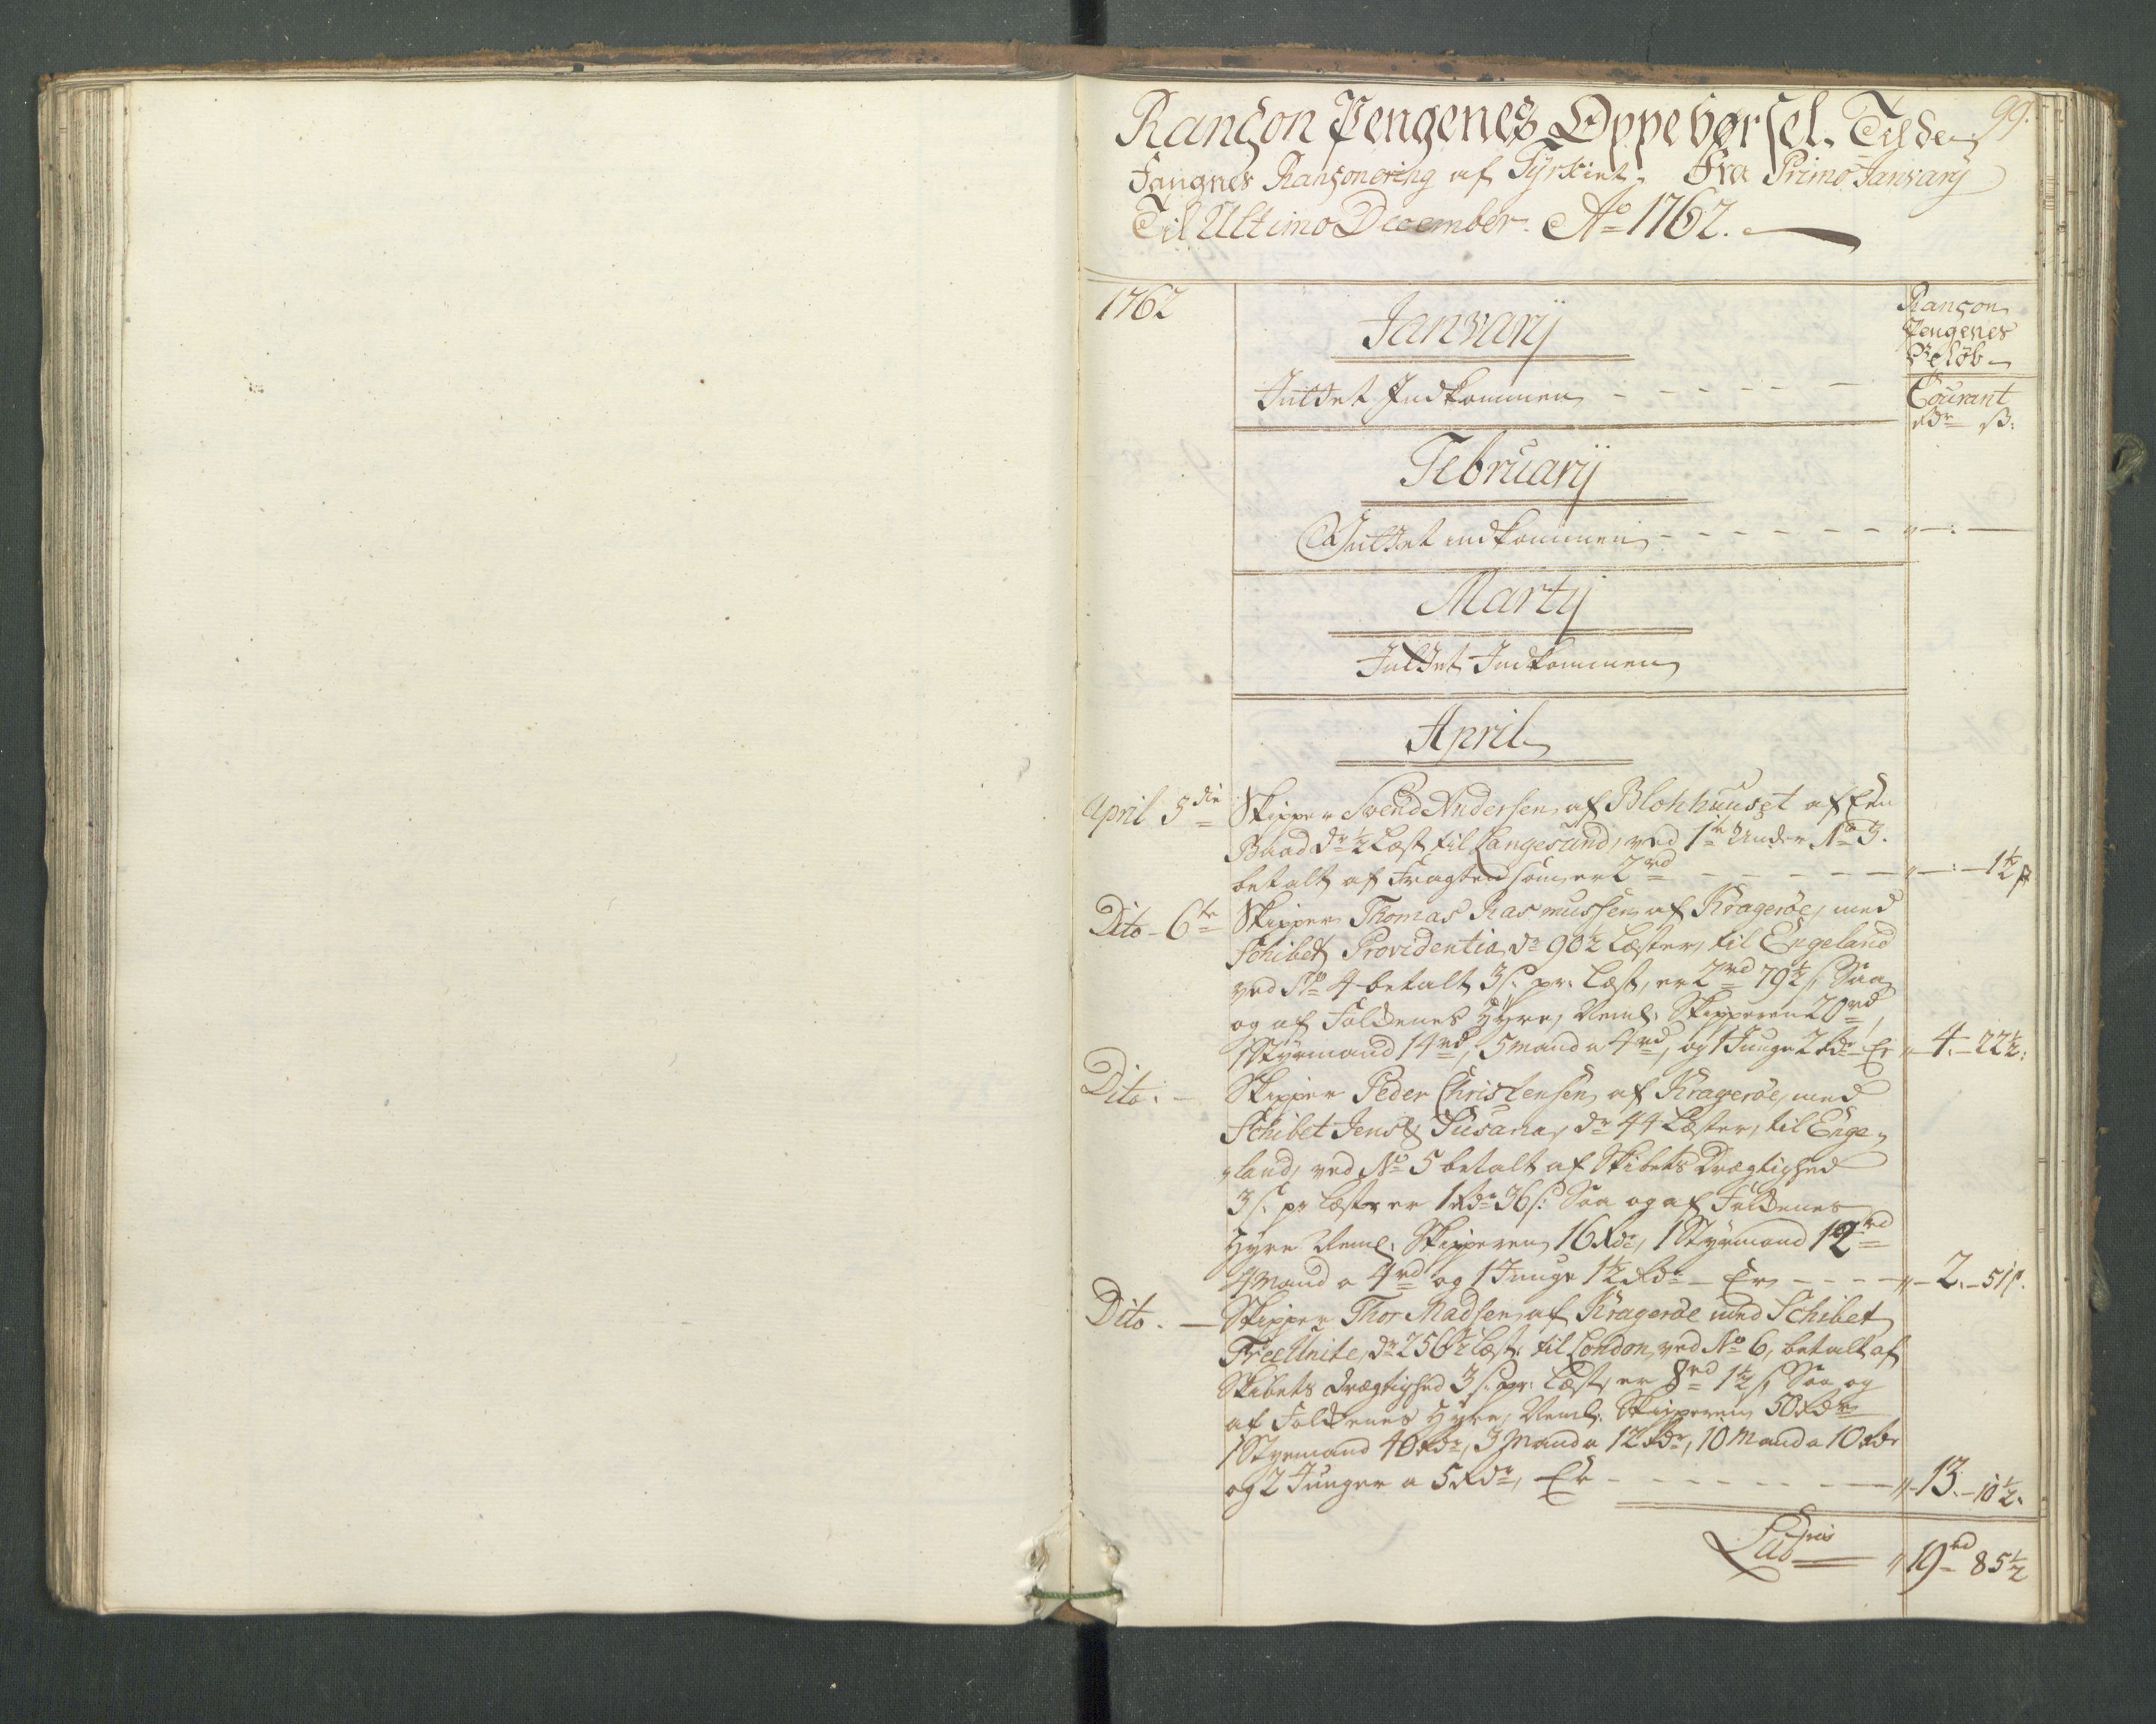 99.
Rançon Pengenes Oppebørsel. Til de
Fangnes Rançonering af Tyrkiet. Fra Primo Janvarÿ
Til Ultimo December. Ao 1762.
1762
Janvarÿ
Rançon
Pengenes
Beløb
Courant
rdr ß:
Intet Indkommen
Februarÿ
Intet indkommen
Martÿ
Intet Indkommen
April
April 5die Skipper Svend Andersen af Blokhuuset af Een
Baad dr ½ Læst til Langesund, ved No 3.
betalt af Fragten som er 2rd - - - - - „ - : - 1½ß
Dito 6te Skipper Thomas Rasmussen af Kragerøe, med
Schibet Providentia dr 90½ Læster, til Engeland
ved No 4 betalt 3ß. pr. Læst, er 2rd 79½ß, Saa
og af Folckenes Hyre, Neml. Skipperen 20rd,
1 Styrmand 14rd, 5 Mand a 4rd, og 1 Junge 2 rdr Er „ 4. - 22½.
Dito. - Skipper Peder Christensen af Kragerøe, med
Schibet Susana, dr 44 Læster, til Enge-
land, ved No 5 betalt af Skibets Drægtighed
3ß. pr Læst er 1 rdr 36ß. Saa og af Folckenes
Hyre Neml. Skipperen 16 rdr, 1 Styrmand 12rd
4 Mand a 4rd og 1 Junge 1½ rdr - Er - - - - „ 2. - 51ß.
Dito. - Skipper Thor Madsen af Kragerøe med Schibet
Free Unite, dr 256½ Læst. til London, ved No 6, betalt af
Skibets Drægtighed 3ß. pr. Læst, er 8rd 1½ß, Saa og
af Folckenes Hyre, Neml. Skipperen 50 rdr
1 Styrmand 40 rdr, 3 Mand a 12 rdr, 10 Mand a 10 rdr
og 2 Junger a 5 rdr, Er - - - - - „ 13. - 10½.
Latris „ 19rd 85½